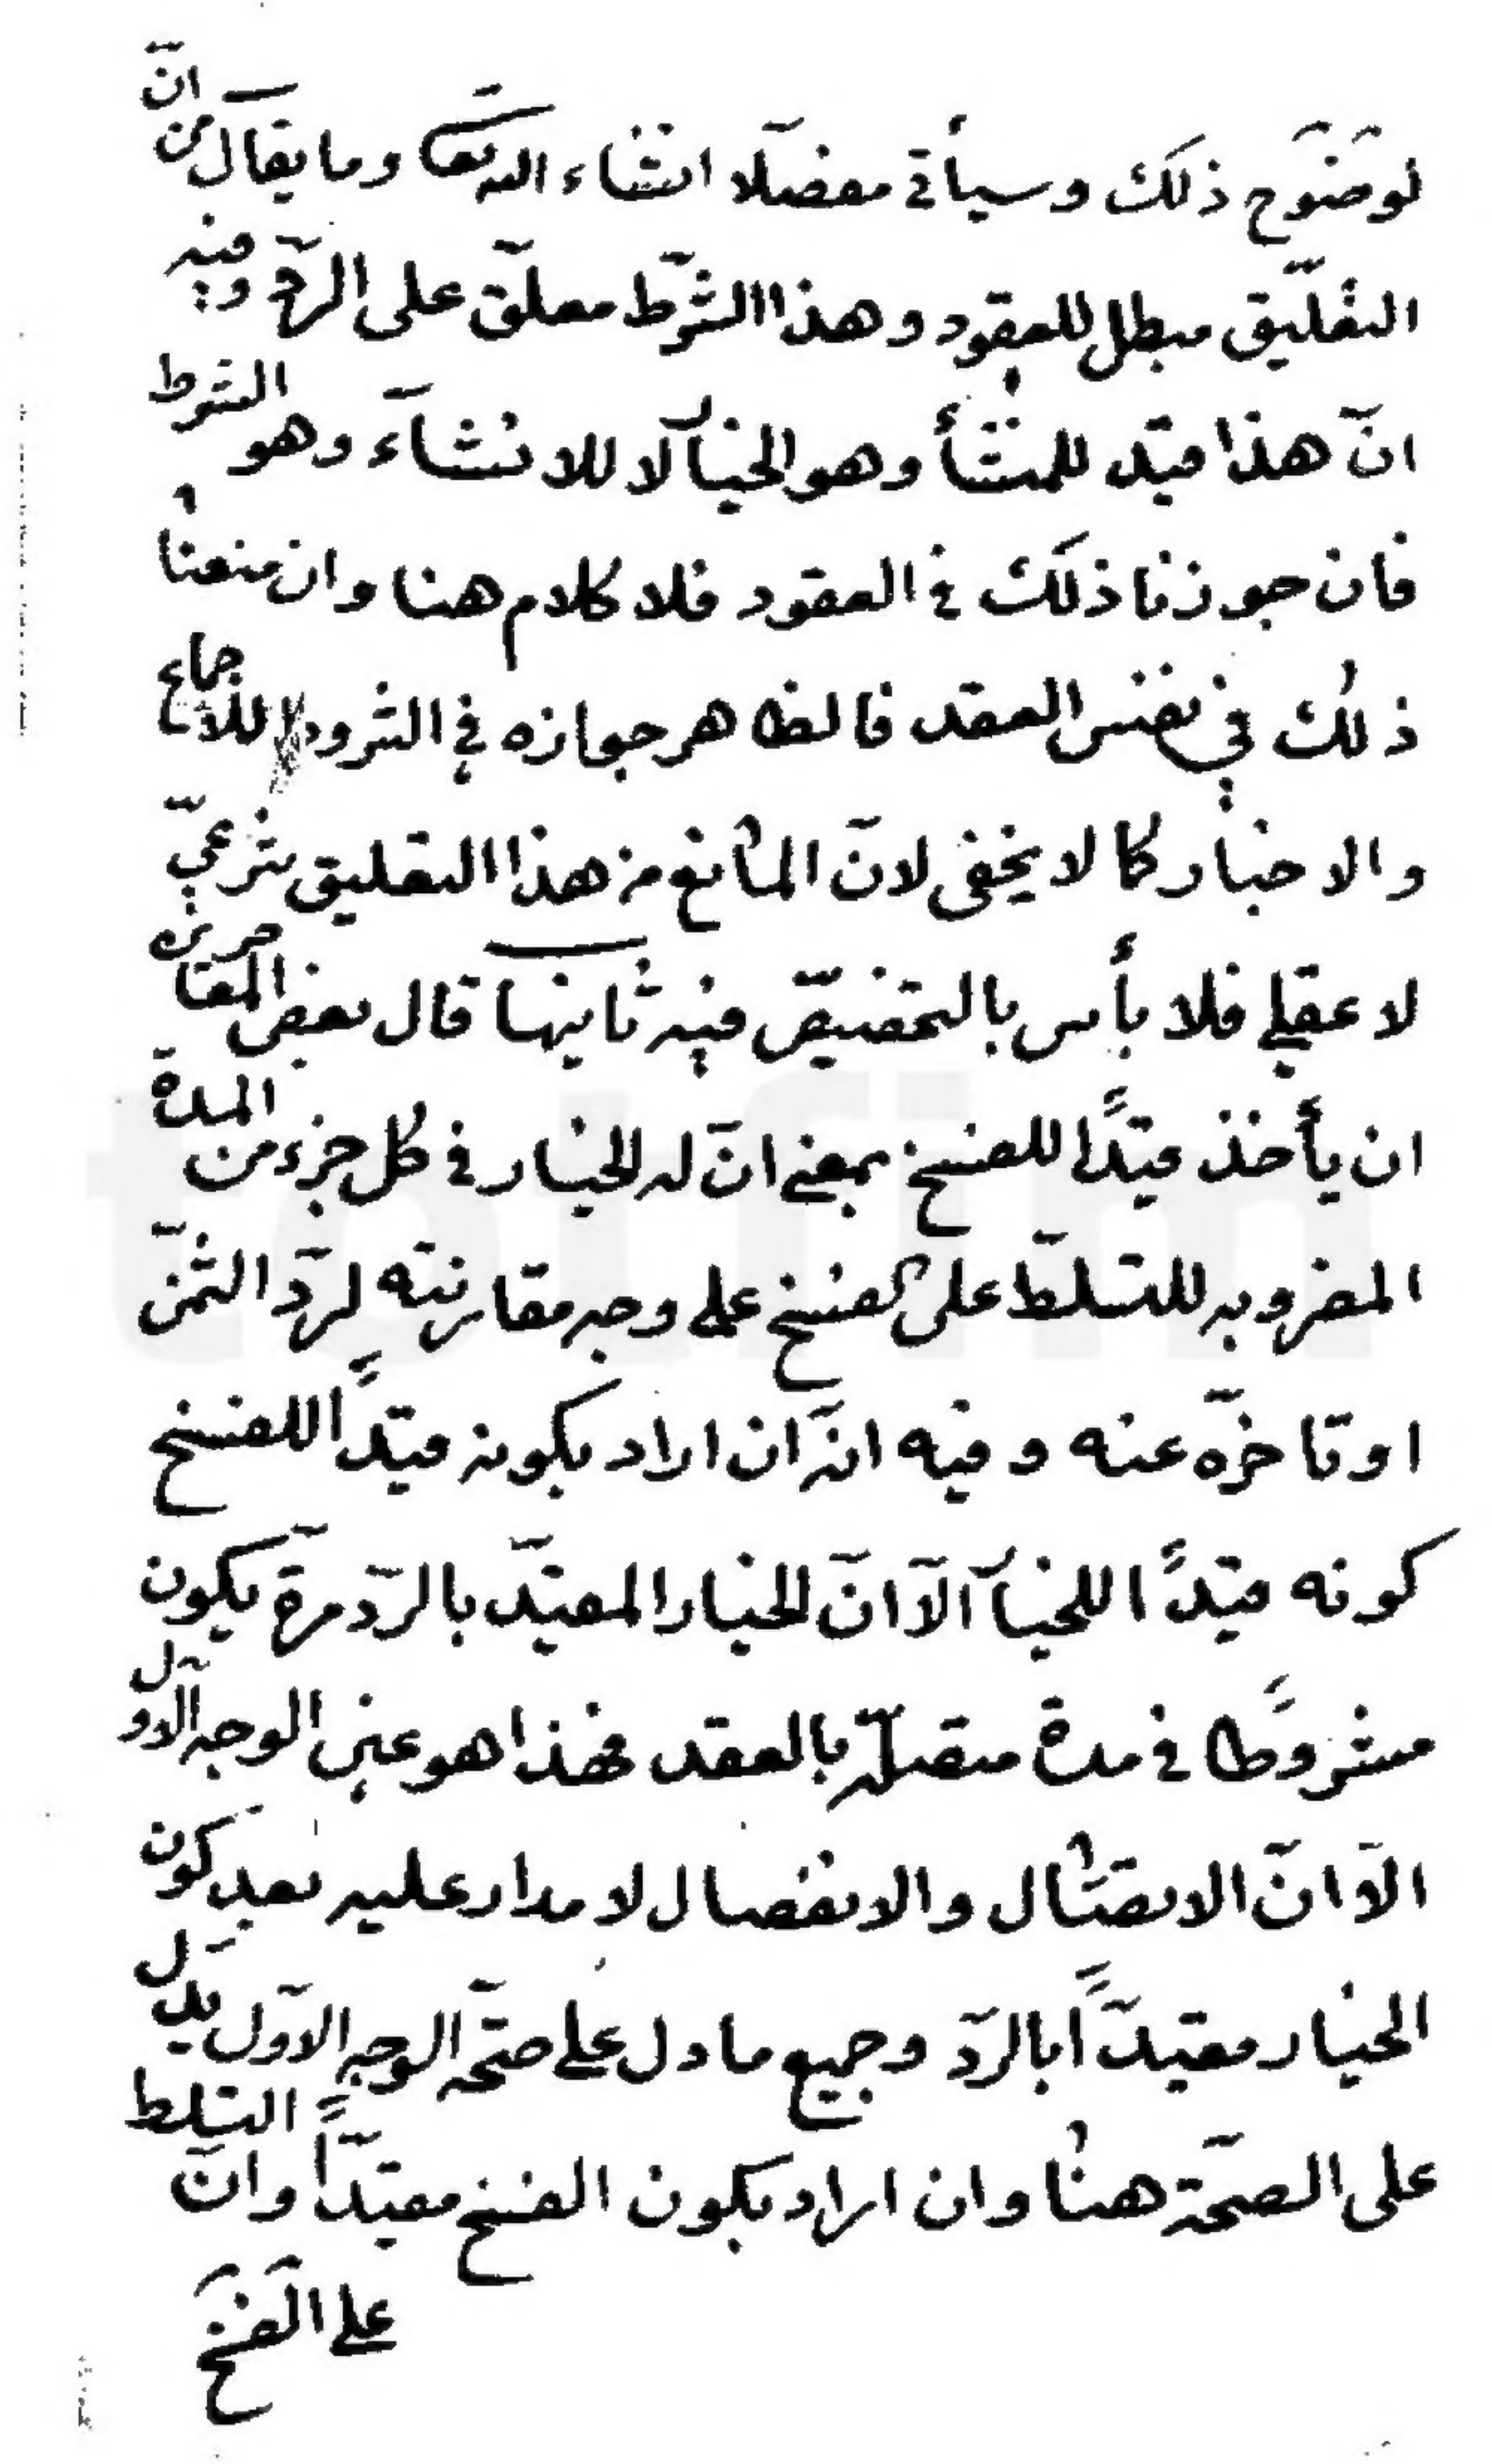 لوضوح ذلك وسيأتى مفصلا انشاء الله تعا وما يقال من انّ
التعليق مبطل للعقود وهذا الشرط معلّق على الردّ وفيه
انّ هذا قيد للمنشأ وهو الخيا لا للانشاء وهو الشرط
فان جوزنا ذلك فى العقود فلا كلام هنا وان منعنا
ذلك فى نفس العقد فالظاهر جوازه فى الشروط للاجماع
والاخبار كما لا يخفى لانّ المانع من هذا التعليق شرعىّ
لا عقلى فلا بأس بالتخصيص فيه ثانيها قال بعض المعاصرين
ان يأخذ قيدًا للفسخ بمعنى انّ له الخيار فى كل جزء من المدة
المضروبه للتسلّط على الفسخ على وجه مقارنته لردّ الثمن
او تاخرّه عنه وفيه انه ان اراد بكونه قيدًا للفسخ
كونه قيدًا للخيا الّا انّ الخيار المقيّد بالردّ مرة يكون
مشروطا فى مدة متصلة بالعقد فهذا هو عين الوجه الاول
الّا انّ الاتصال والانفصال لا مدار عليه بعد كون
الخيار مقيدًا بالردّ وجميع ما دل على صحّة الوجه الاوّل يدل
على الصحّة هنا وان اراد بكون الفسخ مقيّدًا وانّ التسلط
على الفسخ